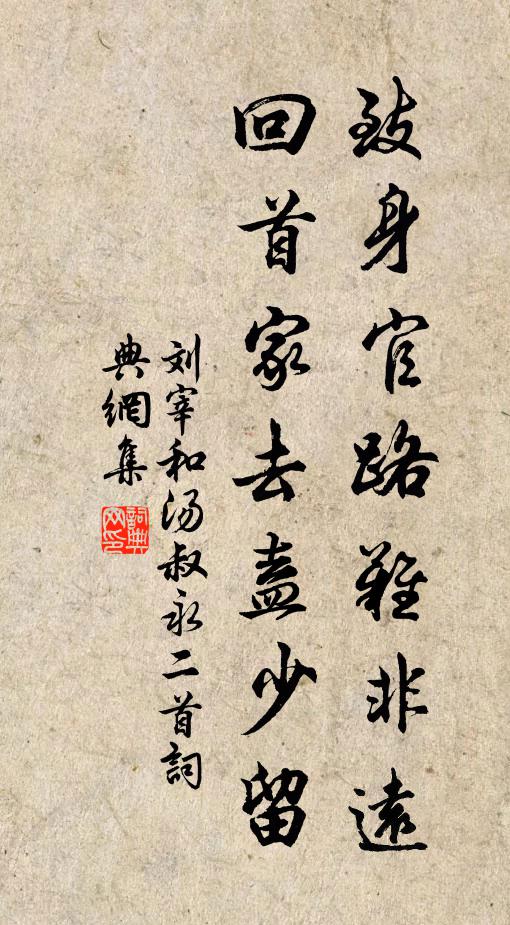 致身官路雖非遠
回首家去盍少留
刘宰和汤叔永二首詞
典網集
詞典
网印